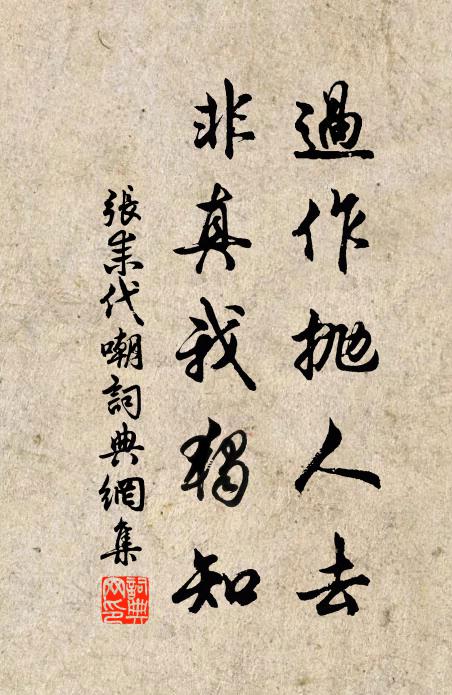 過作抛人去
非真我獨知
張耒代嘲詞典網集
詞典網印